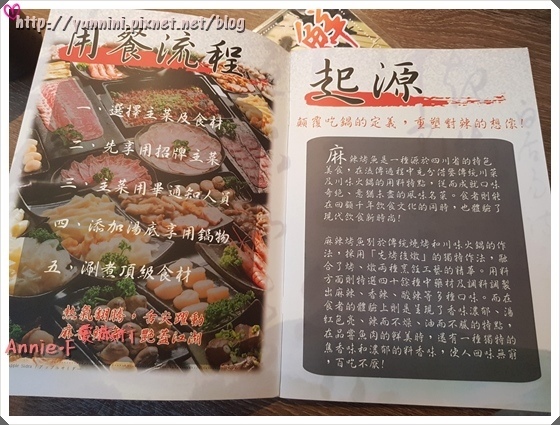 http://yunnini.pixnet.net/blog
用餐流程
一、選擇主菜及食材
二、先享用招牌主菜
三、主菜用畢通知人員
四、添加湯底享用鍋物
五、涮煮頂級食材
熱氣翻騰,舌尖躍動
艷蓋江湖
Annie卡
鮮
起源
顛覆吃鍋的定義,重塑對辣的想像!
麻辣烤魚是一種源於四川省的特色
美食,在流傳過程中充分借鑒傳統川菜
及川味火鍋的用料特點,從而成就口味
奇絕、意猶未盡的風味名菜。食者則能
在回顧千年飲食文化的同時,也體驗了
現代飲食新時尚!
麻辣烤魚別於傳統燒烤和川味火鍋的作
法,採用「先烤後燉」的獨特作法,融
合了烤、燉兩種烹飪工藝的精華。用料
方面則精選四十餘種中藥材及調料調製
出麻辣、香辣、酸辣等多種口味。而在
食者的體驗上則是呈現了香味濃郁、湯
紅色亮、辣而不燥、油而不膩的特點,
在品嚐魚肉的鮮美時,還有一種獨特的
焦香味和濃郁的料香味,決人回味無窮
,百吃不厭!